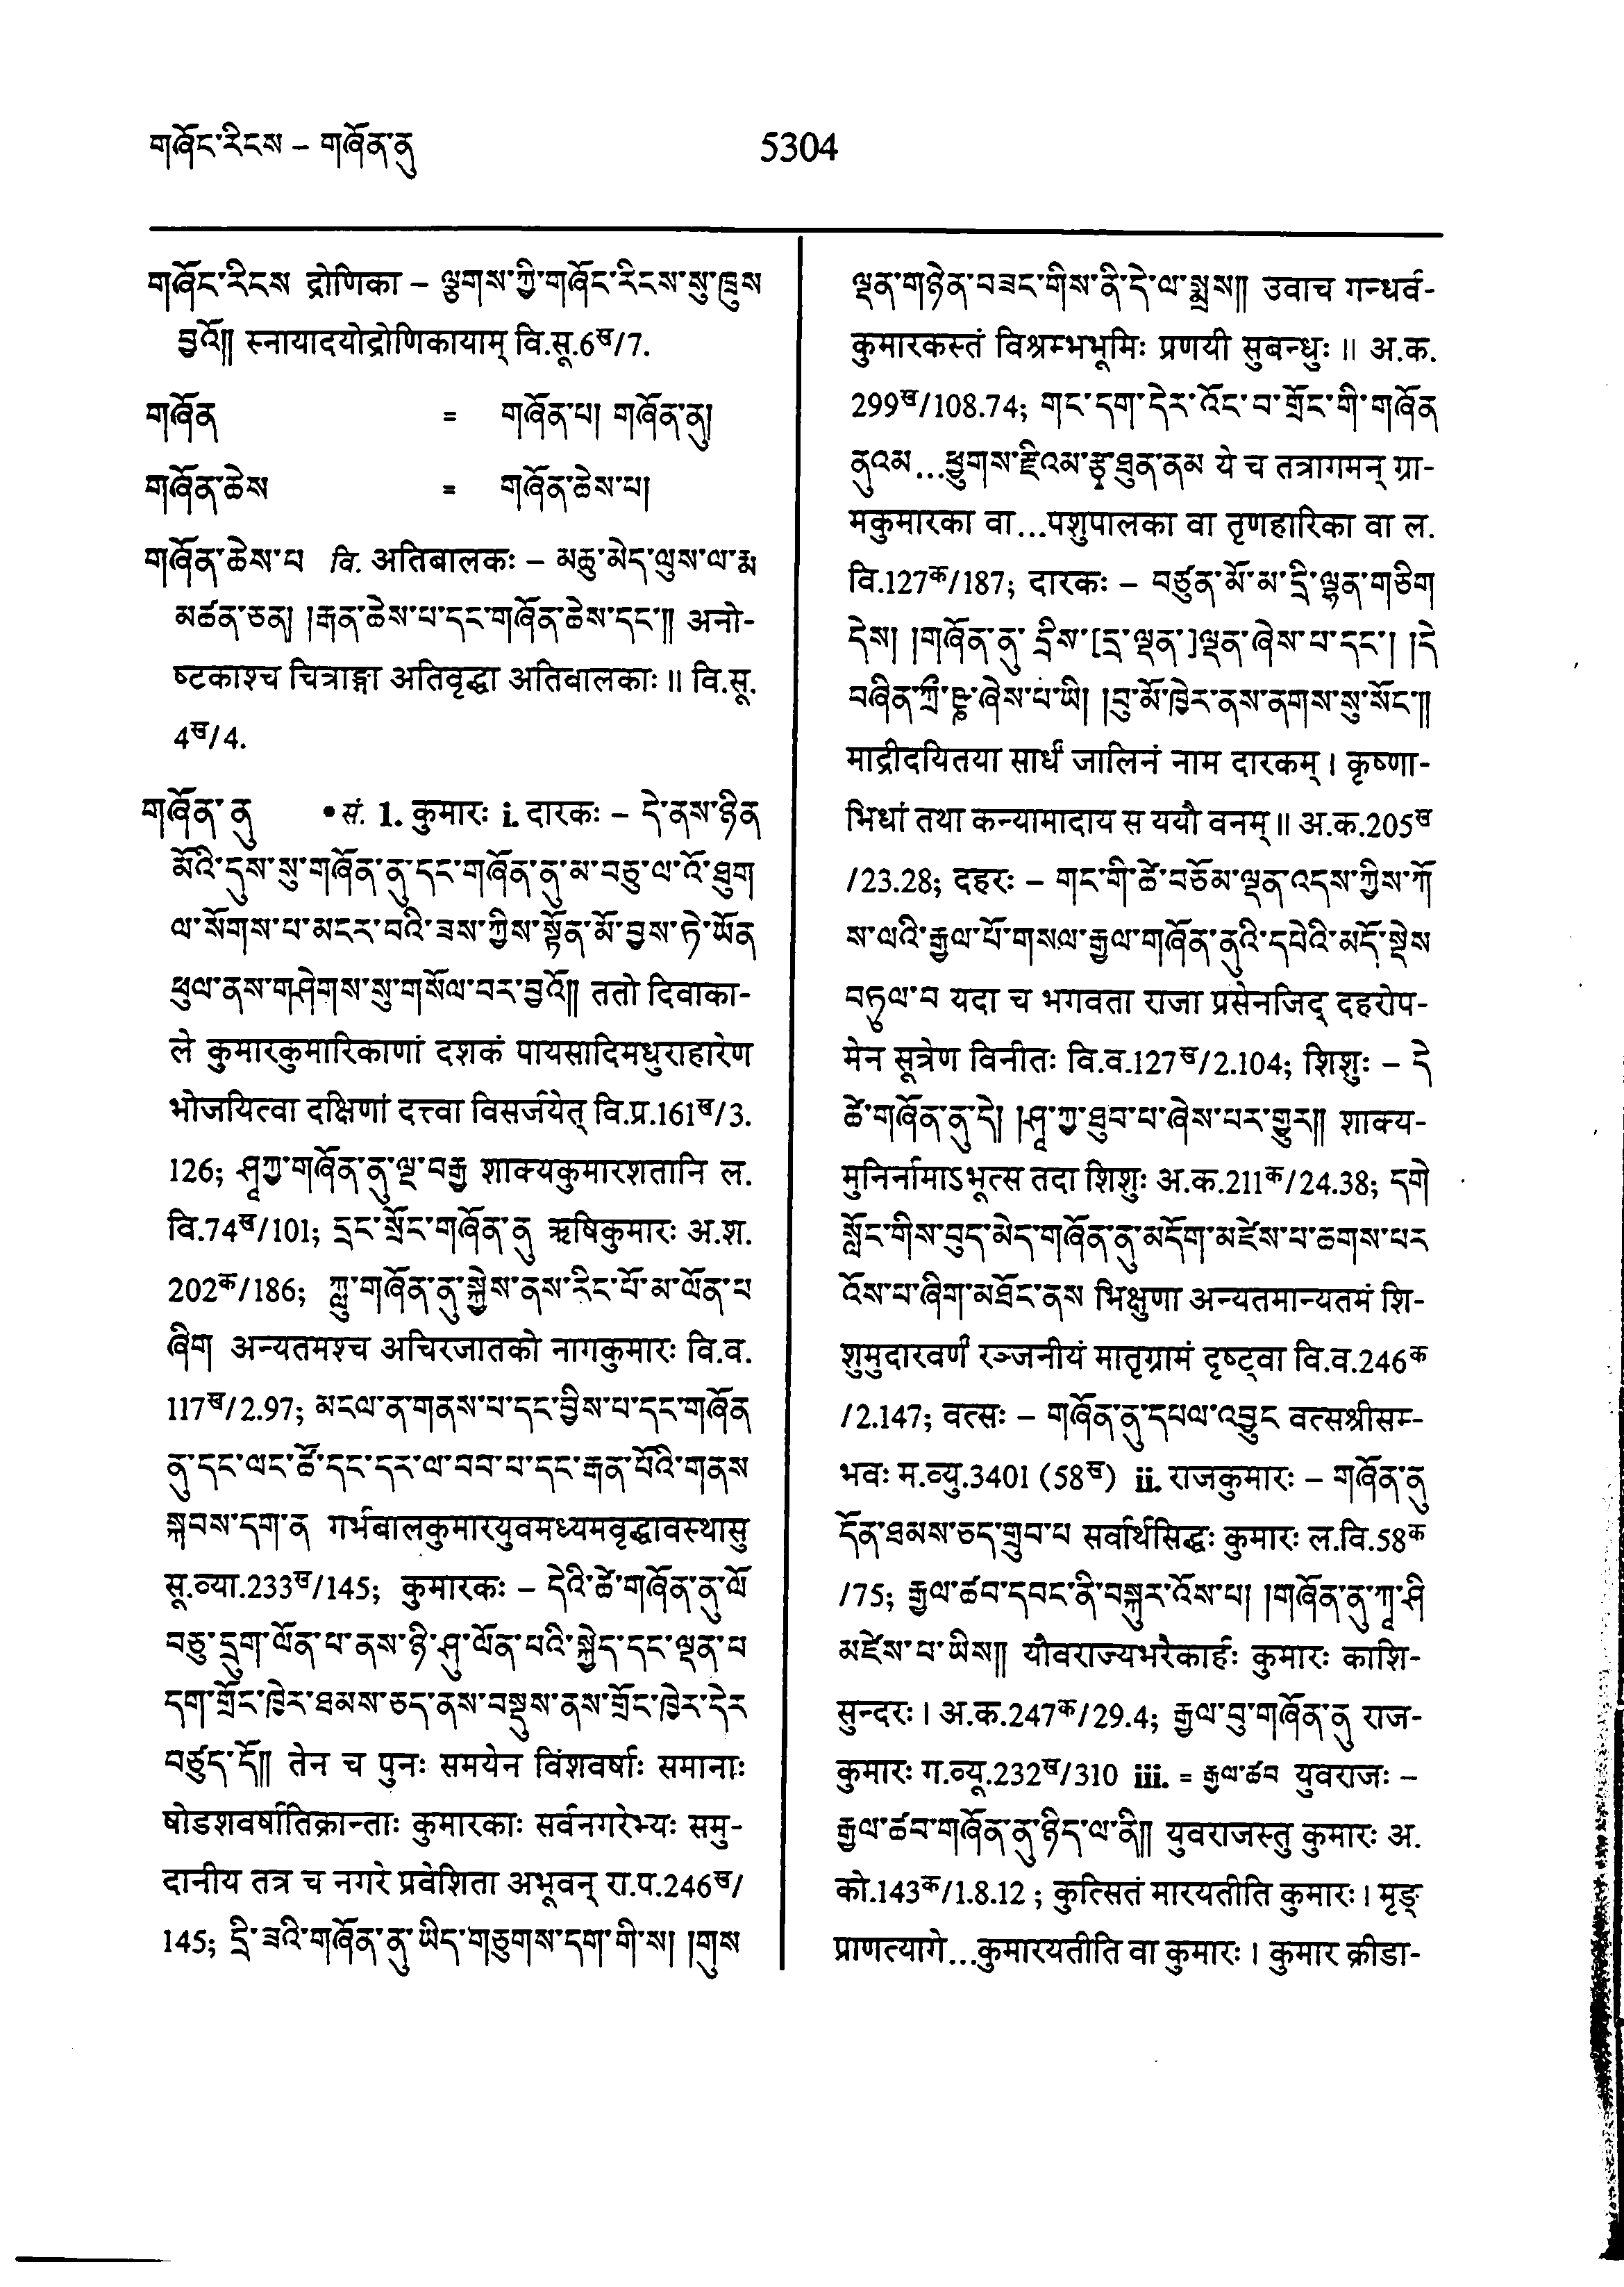 གཞོང་རིངས – གཞོན་ནུ
5304
གཞོང་རིངས द्रोणिका – ལྕགས་ཀྱི་གཞོང་རིངས་སུ་ཁྲུས
བྱའོ།། स्नायादयोद्रोणिकायाम् वि.सू.6ख/7.
གཞོན = གཞོན་པ། གཞོན་ནུ།
གཞོན་ཆེས = གཞོན་ཆེས་པ།
གཞོན་ཆེས་པ वि. अतिबालकः – མཆུ་མེད་ལུས་ལ་རྨ
མཚན་ཅན། །རྒན་ཆེས་པ་དང་གཞོན་ཆེས་དང་།། अनो-
ष्टकाश्च चित्राङ्गा अतिवृद्धा अतिबालकाः॥ वि.सू.
4ख/4.
གཞོན་ནུ • सं. 1. कुमारः i. दारकः – དེ་ནས་ཉིན
མོའི་དུས་སུ་གཞོན་ནུ་དང་གཞོན་ནུ་མ་བཅུ་ལ་འོ་ཐུག
ལ་སོགས་པ་མངར་བའི་ཟས་ཀྱིས་སྟོན་མོ་བྱས་ཏེ་ཡོན
ཕུལ་ནས་གཤེགས་སུ་གསོལ་བར་བྱའོ།། ततो दिवाका-
ले कुमारकुमारिकाणां दशकं पायसादिमधुराहारेण
भोजयित्वा दक्षिणां दत्त्वा विसर्जयेत् वि.प्र.161ख/3.
126; ཤཱཀྱ་གཞོན་ནུ་ལྔ་བརྒྱ शाक्यकुमारशतानि ल.
वि.74ख/101; དྲང་སྲོང་གཞོན་ནུ ऋषिकुमारः अ.श.
202क/186; ཀླུ་གཞོན་ནུ་སྐྱེས་ནས་རིང་པོ་མ་ལོན་པ
ཞིག अन्यतमश्च अचिरजातको नागकुमारः वि.व.
117ख/2.97; མངལ་ན་གནས་པ་དང་བྱིས་པ་དང་གཞོན
ནུ་དང་ལང་ཚོ་དང་དར་ལ་བབ་པ་དང་རྒན་པོའི་གནས
སྐབས་དག་ན गर्भबालकुमारयुवमध्यमवृद्धावस्थासु
सू.व्या.233ख/145; कुमारकः – དེའི་ཚེ་གཞོན་ནུ་ལོ
བཅུ་དྲུག་ལོན་པ་ནས་ཉི་ཤུ་ལོན་པའི་སྐྱེད་དང་ལྡན་པ
དག་གྲོང་ཁྱེར་ཐམས་ཅད་ནས་བསྡུས་ནས་གྲོང་ཁྱེར་དེར
བཙུད་དོ།། तेन च पुनः समयेन विंशवर्षाः समानाः
षोडशवर्षातिक्रान्ताः कुमारकाः सर्वनगरेभ्यः समु-
दानीय तत्र च नगरे प्रवेशिता अभूवन् रा.प.246ख/
145; དྲི་ཟའི་གཞོན་ནུ་ཡིད་གཅུགས་དག་གི་ས། །གུས
ལྡན་གཉེན་བཟང་གིས་ནི་དེ་ལ་སྨྲས།། उवाच गन्धर्व-
कुमारकस्तं विश्रम्भभूमिः प्रणयी सुबन्धुः॥ अ.क.
299ख/108.74; གང་དག་དེར་འོང་བ་གྲོང་གི་གཞོན
ནུའམ...ཕྱུགས་རྫིའམ་རྩྭ་ཐུན་ནམ ये च तत्रागमन् ग्रा-
मकुमारका वा...पशुपालका वा तृणहारिका वा ल.
वि.127क/187; दारकः – བཙུན་མོ་མ་དྲི་ལྷན་གཅིག
དེས། །གཞོན་ནུ་དྲིས་[དྲ་ལྡན་]ལྡན་ཞེས་པ་དང་། །དེ
བཞིན་ཀྲྀཥྞ་ཞེས་པ་ཡི། །བུ་མོ་ཁྱེར་ནས་ནགས་སུ་སོང་།།
माद्रीदयितया सार्धं जालिनं नाम दारकम्। कृष्णा-
भिधां तथा कन्यामादाय स ययौ वनम्॥ अ.क.205ख
/23.28; दहरः – གང་གི་ཚེ་བཅོམ་ལྡན་འདས་ཀྱིས་ཀོ
ས་ལའི་རྒྱལ་པོ་གསལ་རྒྱལ་གཞོན་ནུའི་དཔེའི་མདོ་སྡེས
བཏུལ་བ यदा च भगवता राजा प्रसेनजिद् दहरोप-
मेन सूत्रेण विनीतः वि.व.127ख/2.104; शिशुः – དེ
ཚེ་གཞོན་ནུ་དེ། །ཤཱ་ཀྱ་ཐུབ་པ་ཞེས་པར་གྱུར།། शाक्य-
मुनिर्नामाऽभूत्स तदा शिशुः अ.क.211क/24.38; དགེ
སློང་གིས་བུད་མེད་གཞོན་ནུ་མདོག་མཛེས་པ་ཆགས་པར
འོས་པ་ཞིག་མཐོང་ནས भिक्षुणा अन्यतमान्यतमं शि-
शुमुदारवर्णं रञ्जनीयं मातृग्रामं दृष्ट्वा वि.व.246क
/2.147; वत्सः – གཞོན་ནུ་དཔལ་འབྱུང वत्सश्रीसम्-
भवः म.व्यु.3401 (58ख) ii. राजकुमारः – གཞོན་ནུ
དོན་ཐམས་ཅད་གྲུབ་པ सर्वार्थसिद्धः कुमारः ल.वि.58क
/75; རྒྱལ་ཚབ་དབང་ནི་བསྐུར་འོས་པ། །གཞོན་ནུ་ཀཱ་ཤི
མཛེས་པ་ཡིས།། यौवराज्यभरैकार्हः कुमारः काशि-
सुन्दरः। अ.क.247क/29.4; རྒྱལ་བུ་གཞོན་ནུ राज-
कुमारः ग.व्यू.232ख/310 iii. = རྒྱལ་ཚབ युवराजः –
རྒྱལ་ཚབ་གཞོན་ནུ་ཉིད་ལ་ནི།། युवराजस्तु कुमारः अ.
को.143क/1.8.12; कुत्सितं मारयतीति कुमारः। मृङ्
प्राणत्यागे...कुमारयतीति वा कुमारः। कुमार क्रीडा-